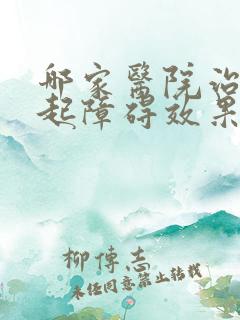 哪家醫院治
起障碍效果
柳傳志
未经同意禁止转载